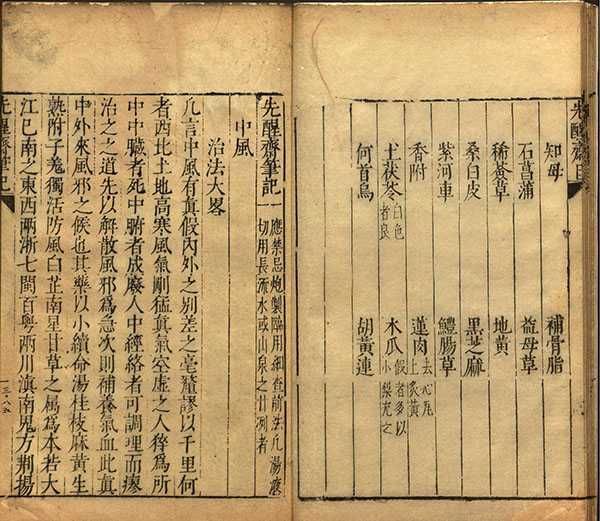 先醒齋目
知母　補骨脂
石菖蒲　益母草
稀薟草　地黃
桑白皮　黑芝麻
紫河車　鱧腸草
香附　蓮肉去心瓦上炙黃
土茯苓白色者良　木瓜假者多以小梨充之
何首烏　胡黃連
先醒齋筆記一　應禁忌炮製臨用細查前法凡湯液
一切用長流水或山泉之甘冽者
中風
治法大畧
凡言中風有真假內外之別差之毫釐謬以千里何
者西北土地高寒風氣剛猛真氣空虛之人猝為所
中中臟者死中腑者成廢人中經絡者可調理而瘳
治之之道先以解散風邪為急次則補養氣血此真
中外來風邪之候也其藥以小續命湯桂枝麻黃生
熟附子羌獨活防風白芷南星甘草之属為本若大
江已南之東西兩浙七閩百粵兩川滇南鬼方荊揚
先醒齋筆記